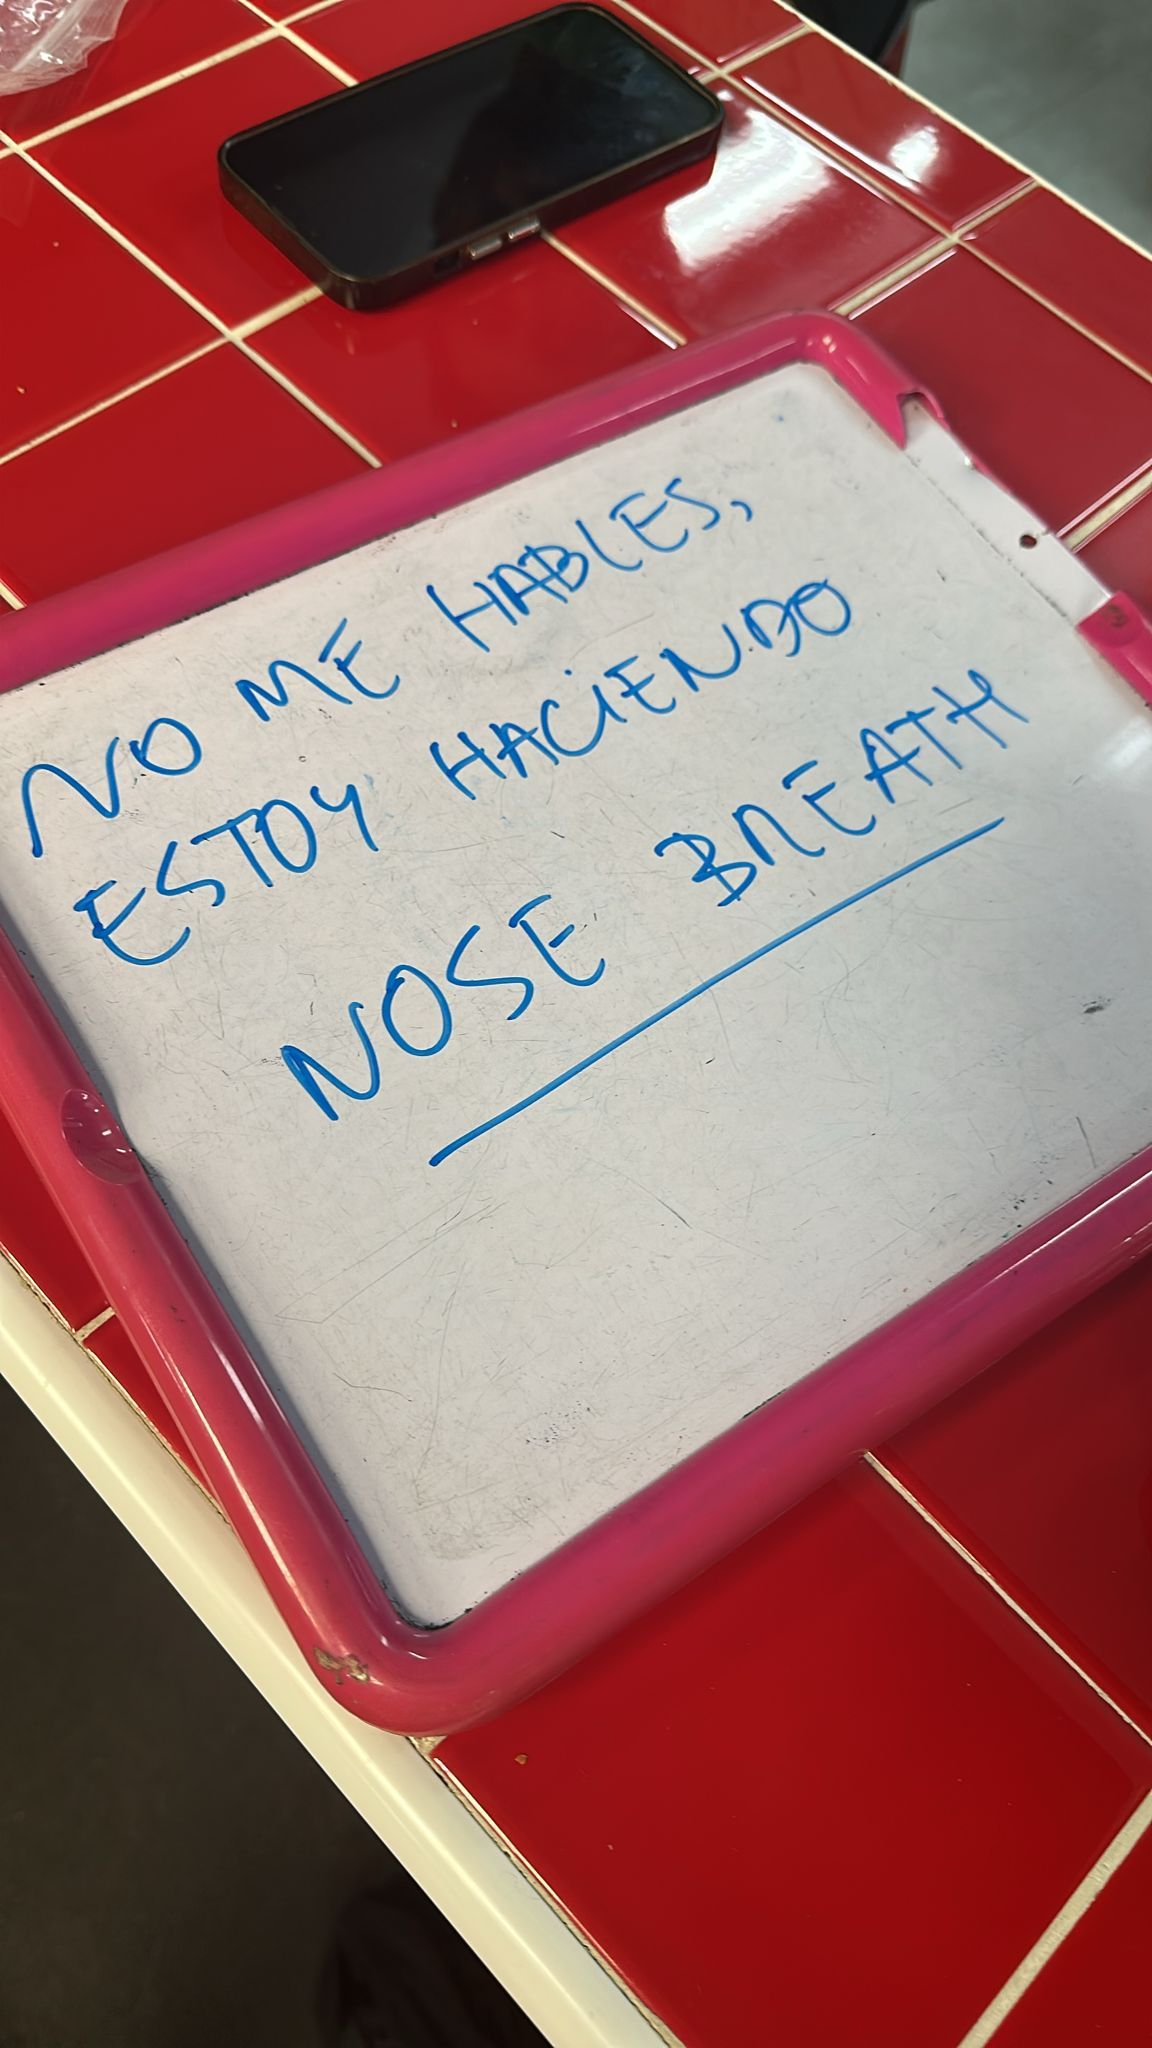 NO ME HABLES,
ESTOY HACIENDO
NOSE BREATH